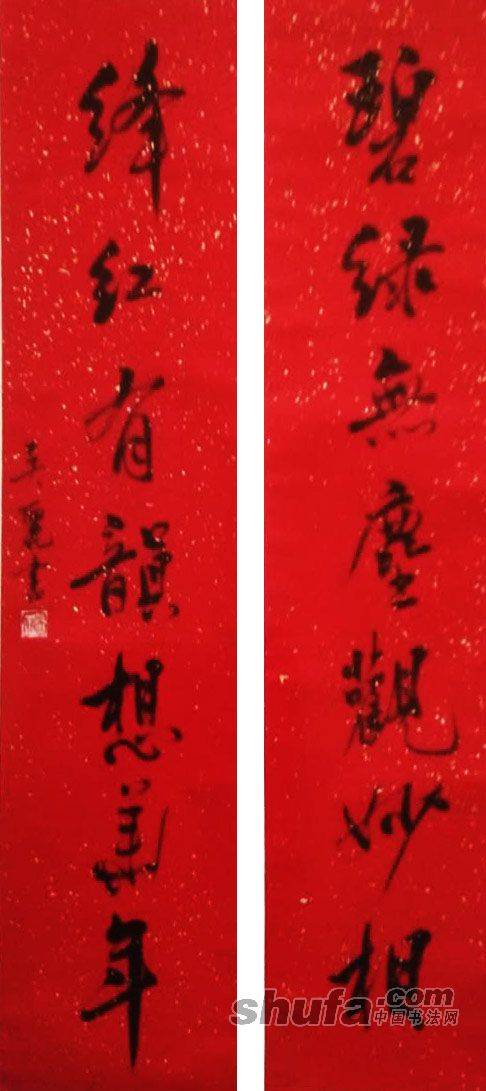 碧绿無塵觀妙相
绛红有韻想華年
shufa.com
中国书法网